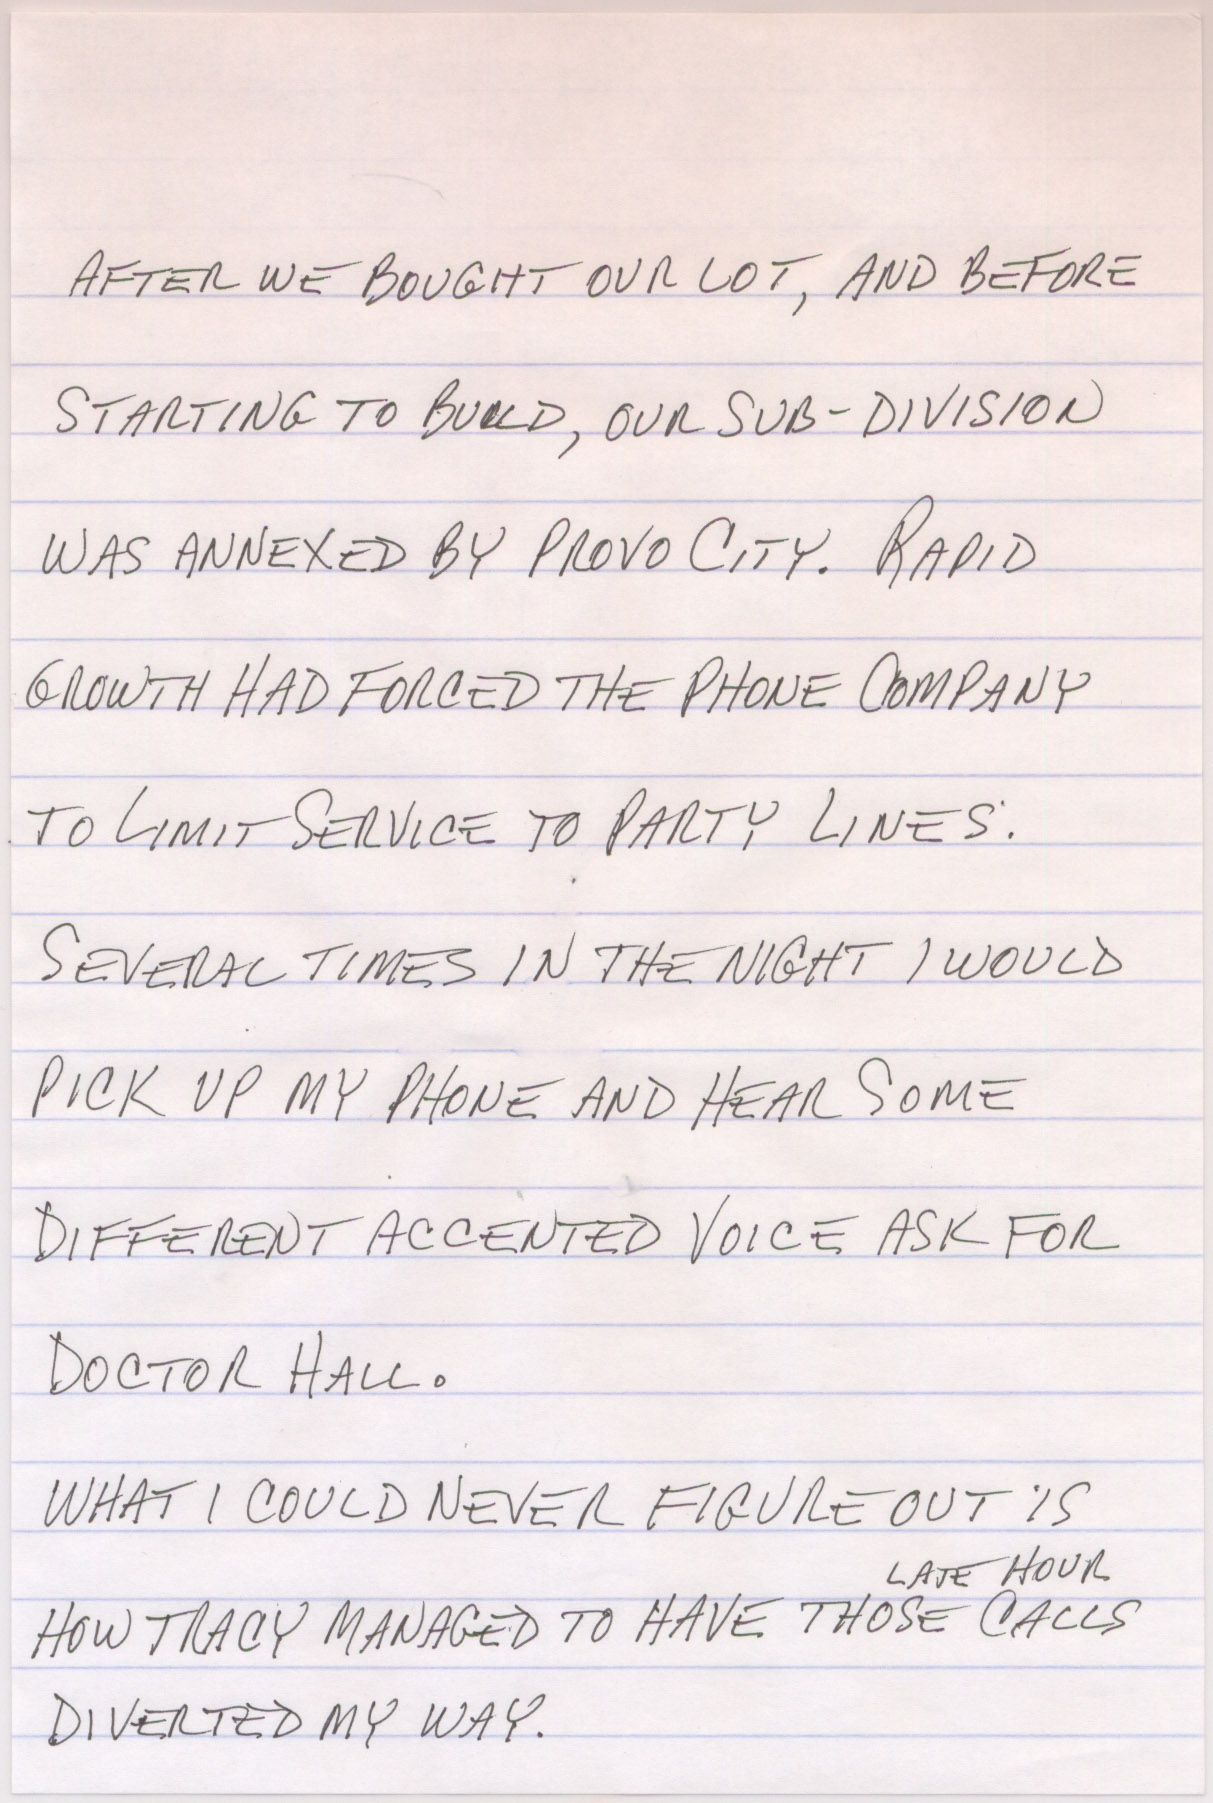 AFTER WE BOUGHT OUR LOT, AND BEFORE
STARTING TO BUILD, OUR SUB-DIVISION
WAS ANNEXED BY PROVO CITY. RAPID
GROWTH HAD FORCED THE PHONE COMPANY
TO LIMIT SERVICE TO PARTY LINES.
SEVERAL TIMES IN THE NIGHT I WOULD
PICK UP MY PHONE AND HEAR SOME
DIFFERENT ACCENTED VOICE ASK FOR
DOCTOR HALL.
WHAT I COULD NEVER FIGURE OUT IS
LATE HOUR
HOW TRACY MANAGED TO HAVE THOSE CALLS
DIVERTED MY WAY.